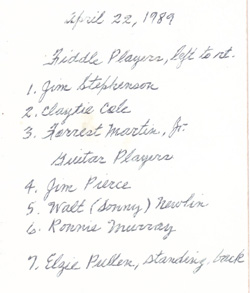 April 22, 1989
Fiddle Players, left to rt.
1. Jim Stephenson
2. Claytie Cole
3. Forrest Martin, Jr.
Guitar Players
4. Jim Pierce
5. Walt (Sonny) Newlin
6. Ronnie Murray
7. Elzie Pullen, standing, back